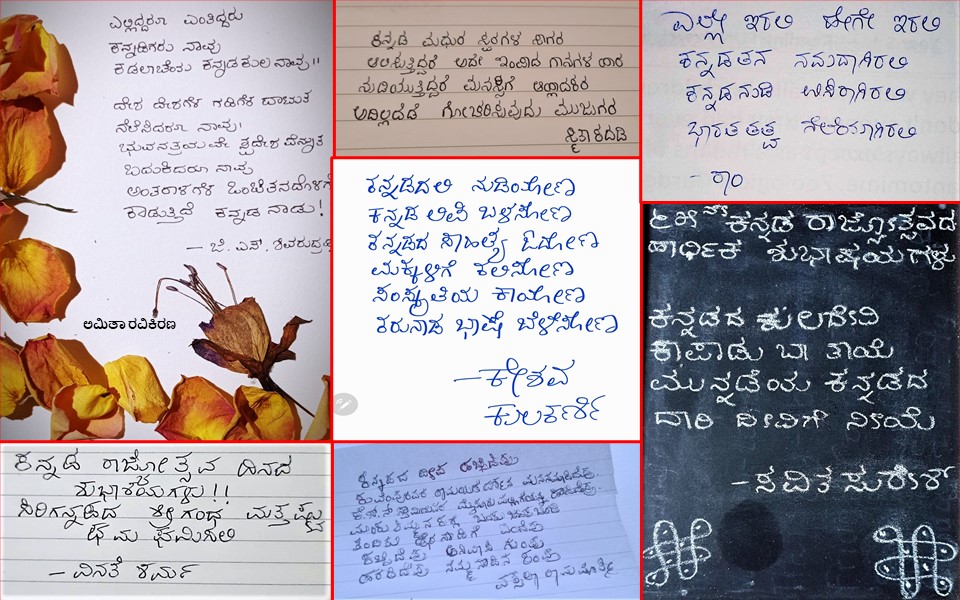 ಎಲ್ಲಿದ್ದರೂ ಎಂತಿದ್ದರು
ಕನ್ನಡಿಗರು ನಾವು
ಕಡಲಾಚೆಯ ಕನ್ನಡಕುಲ ನಾವು॥
ದೇಶ ದೇಶಗಳ ಗಡಿಗಳ ದಾಟುತ
ನೆಲೆಸಿದರೂ ನಾವು।
ಭುವನತ್ರಯವೇ ಸ್ವದೇಶವೆನ್ನುತ
ಬದುಕಿದರೂ ನಾವು
ಅಂತರಾಳಗಳ ಒಂಚೆತನದೊಳಗೆ
ಕಾಡುತ್ತಿದೆ ಕನ್ನಡ ನಾಡು!
— ಜಿ. ಎಸ್. ಶಿವರುದ್ರಪ್ಪ
ಅಮಿತಾ ರವಿಕಿರಣ
ಕನ್ನಡ ಮಧುರ ಸ್ವರಗಳ ಸಾಗರ
ಆಲಿಸುತ್ತಿದ್ದರೆ ಅದೇ ಇಂಪಿನ ಗಾನಗಳ ಹಾರ
ನುಡಿಯುತ್ತಿದ್ದರೆ ಮನಸ್ಸಿಗೆ ಆಹ್ಲಾದಕರ
ಅದಿಲ್ಲದೆಡೆ ಗೋಚರಿಸುವುದು ಮುಜುಗರ
ಸ್ಮಿತಾ ಕದಡಿ
ಎಲ್ಲೇ ಇರಲಿ ಹೇಗೇ ಇರಲಿ
ಕನ್ನಡತನ ನಮದಾಗಿರಲಿ
ಕನ್ನಡನುಡಿ ಉಸಿರಾಗಿರಲಿ
ಭಾರತ ತತ್ವ ನೆಲೆಯಾಗಿರಲಿ
- ರಾಂ
ಕನ್ನಡದಲಿ ನುಡಿಯೋಣ
ಕನ್ನಡ ಲಿಪಿ ಬಳಸೋಣ
ಕನ್ನಡದ ಸಾಹಿತ್ಯ ಓದೋಣ
ಮಕ್ಕಳಿಗೆ ಕಲಿಸೋಣ
ಸಂಸ್ಕೃತಿಯ ಕಾಯೋಣ
ಕರುನಾಡ ಭಾಷೆ ಬೆಳೆಸೋಣ
— ಕೇಶವ
ಕುಲಕರ್ಣಿ
೬೫ನೇ ಕನ್ನಡ ರಾಜ್ಯೋತ್ಸವದ
ಹಾರ್ಧಿಕ ಶುಭಾಷಯಗಳು
ಕನ್ನಡದ ಕುಲದೇವಿ
ಕಾಪಾಡು ಬಾ ತಾಯೆ
ಮುನ್ನಡೆಯ ಕನ್ನಡದ
ದಾರಿ ದೀವಿಗೆ ನೀಯೆ
- ಸವಿತ ಸುರೇಶ್
ಕನ್ನಡ ರಾಜ್ಯೋತ್ಸವ ದಿನದ
ಶುಭಾಶಯಗಳು!!
ಸಿರಿಗನ್ನಡದ ಶ್ರೀಗಂಧ ಮತ್ತಷ್ಟು
ಘಮ ಘಮಿಸಲಿ
- ವಿನತೆ ಶರ್ಮ
ಕನ್ನಡದ ದೀಪ ಹಚ್ಚಿದೆವು